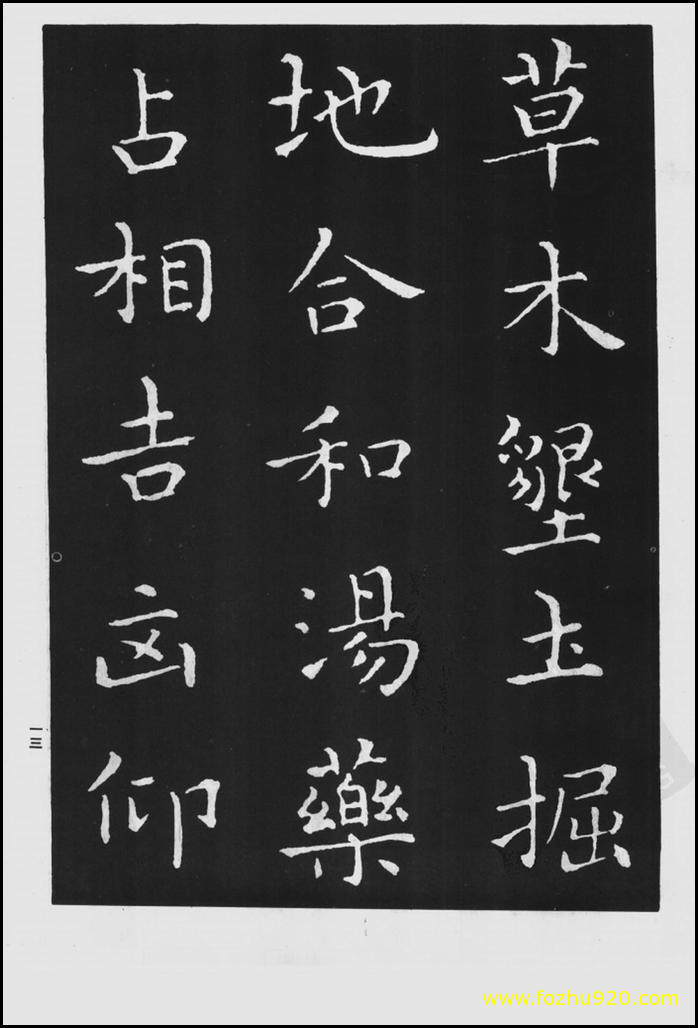 草木墾土掘
地合和湯藥
占相吉凶仰
一三
www.fozhu920.com